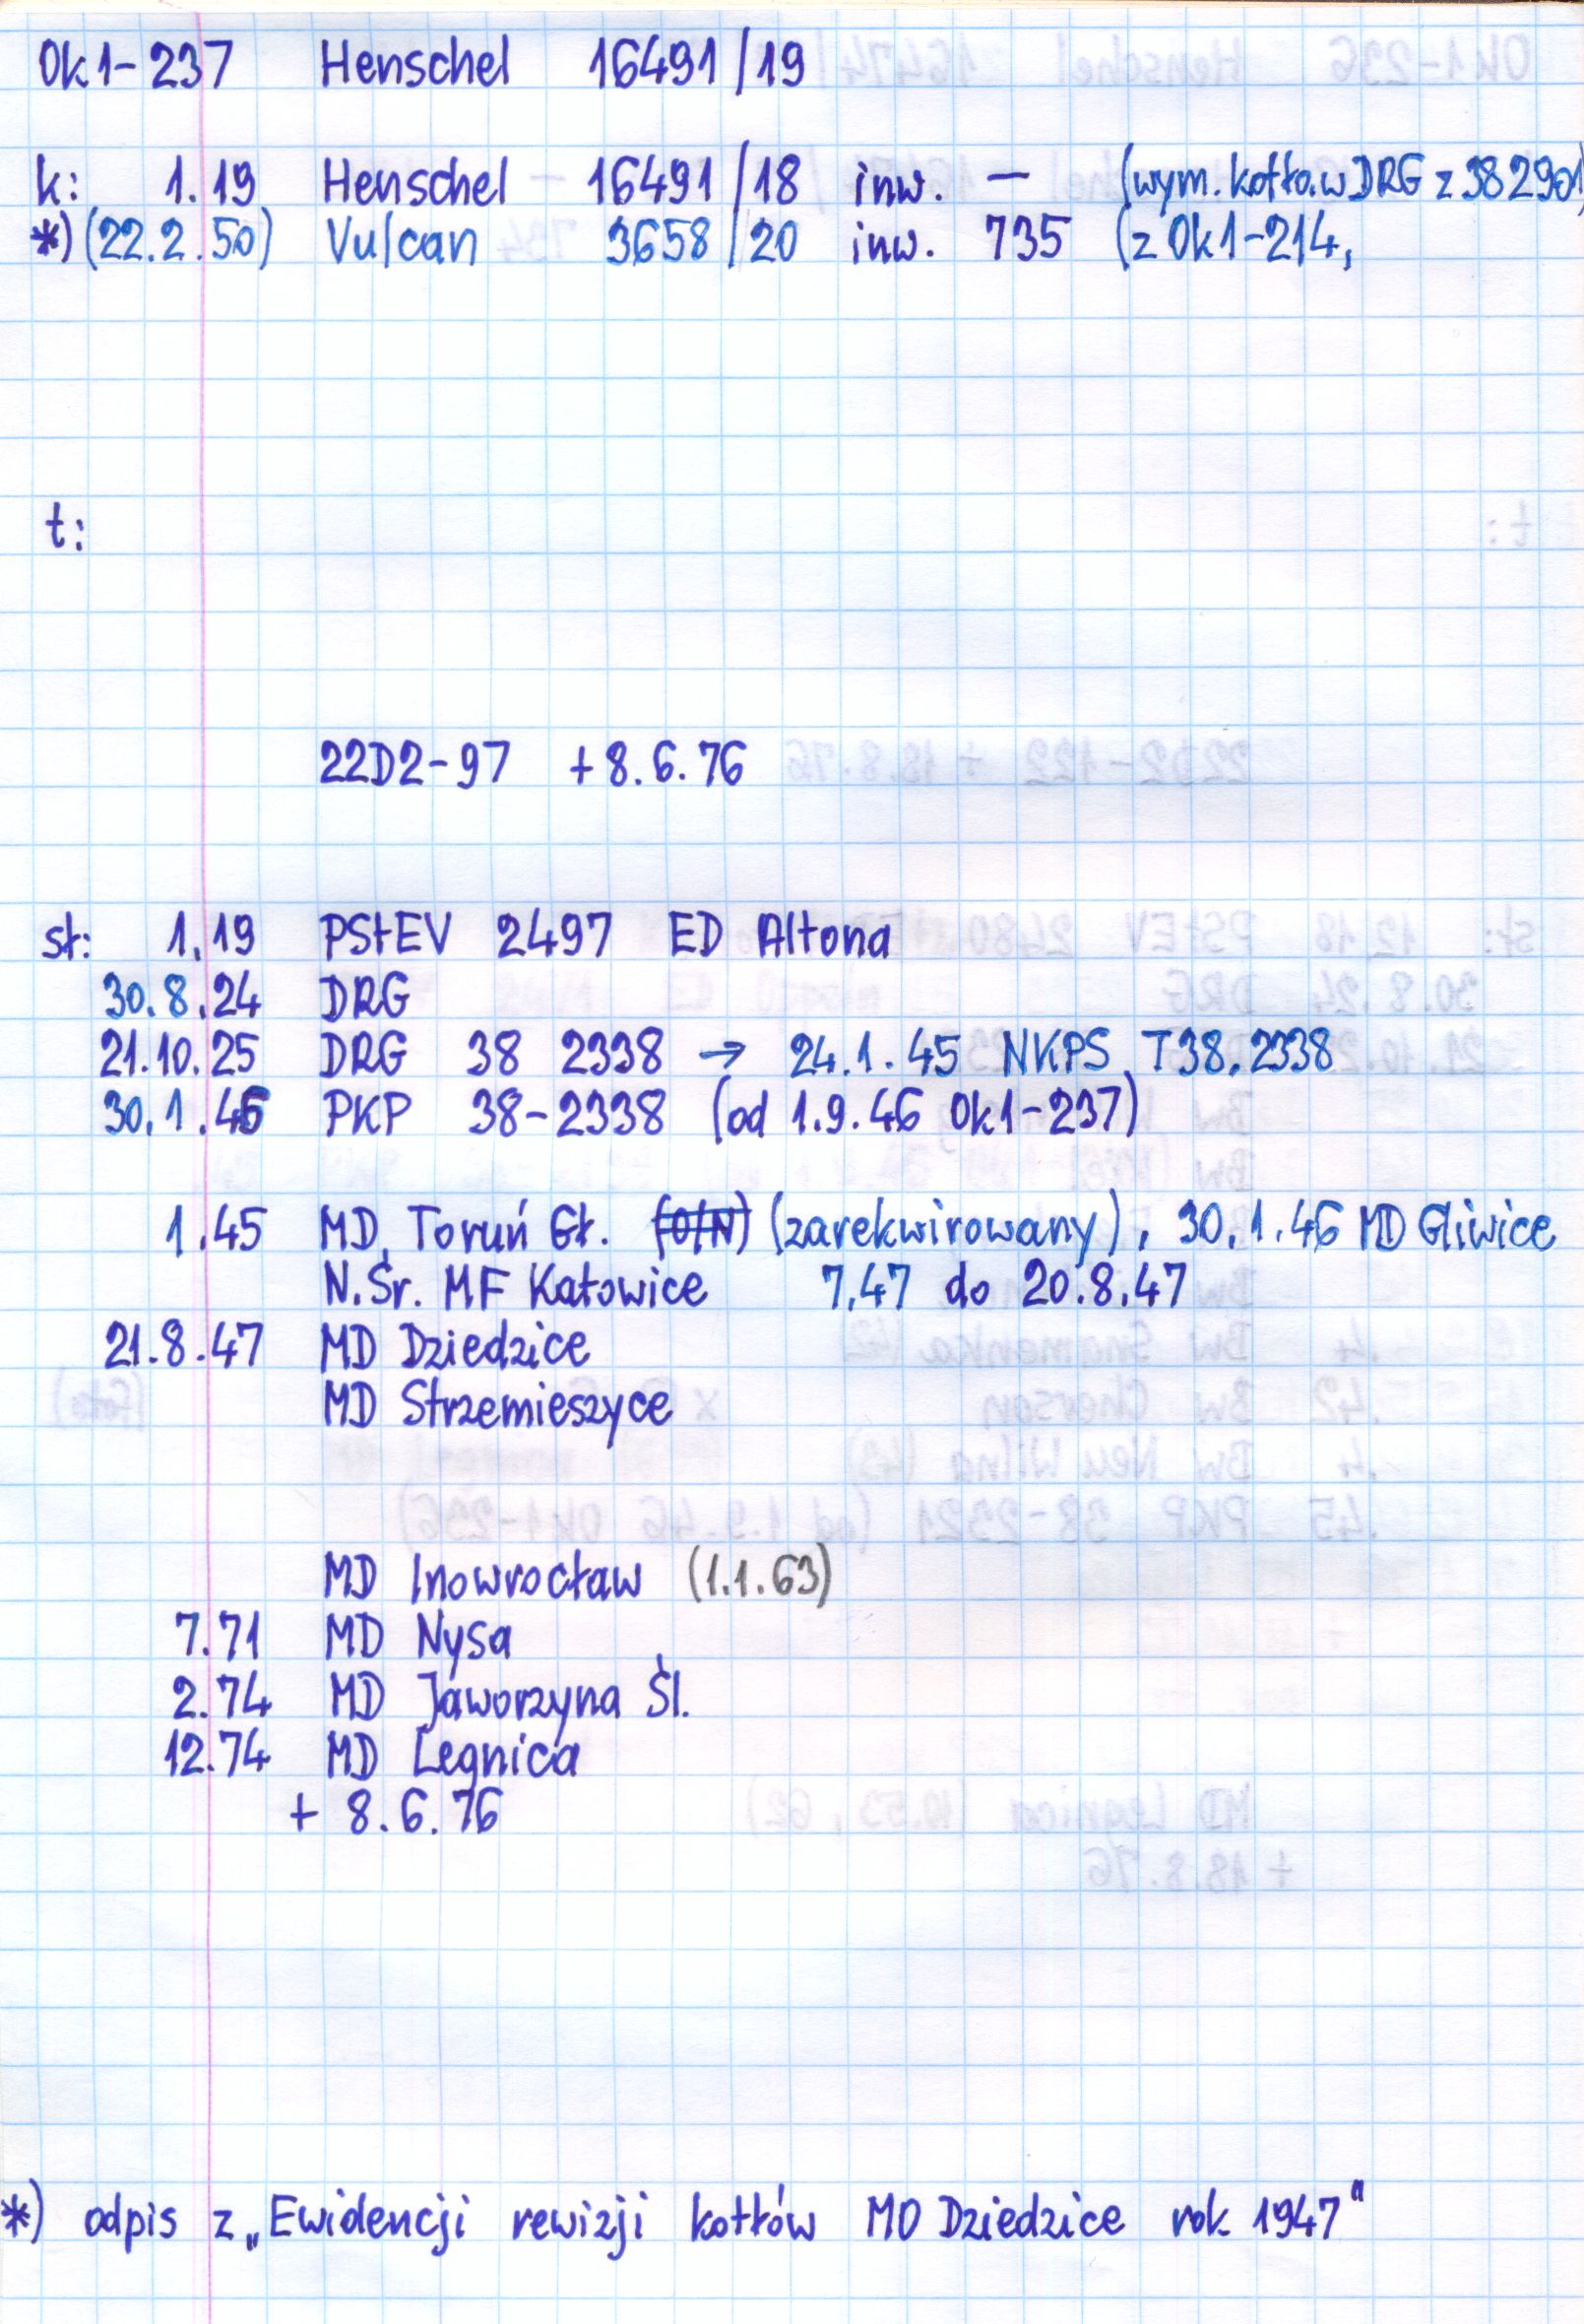 Ok1-237 Henschel 16491/19
k: 1.19 Henschel 16491/18 inw. — (wym. kotła w DRG z 38 2901)
*) (22.2.50) Vulcan 3658/20 inw. 735 (z Ok1-214,
t:
22D2-97 +8.6.76
st: 1.19 PStEV 2497 ED Altona
30.8.24 DRG
21.10.25 DRG 38 2338 → 24.1.45 NKPS T38.2338
30.1.46 PKP 38-2338 (od 1.9.46 Ok1-237)
1.45 MD Toruń Gł. (O/N) (zarekwirowany), 30.1.46 MD Gliwice
N.Śr. MF Katowice 7.47 do 20.8.47
21.8.47 MD Dziedzice
MD Strzemieszyce
MD Inowrocław (1.1.63)
7.71 MD Nysa
2.74 MD Jaworzyna Śl.
12.74 MD Legnica
+ 8.6.76
*) odpis z „Ewidencji rewizji kotłów MD Dziedzice rok 1947"